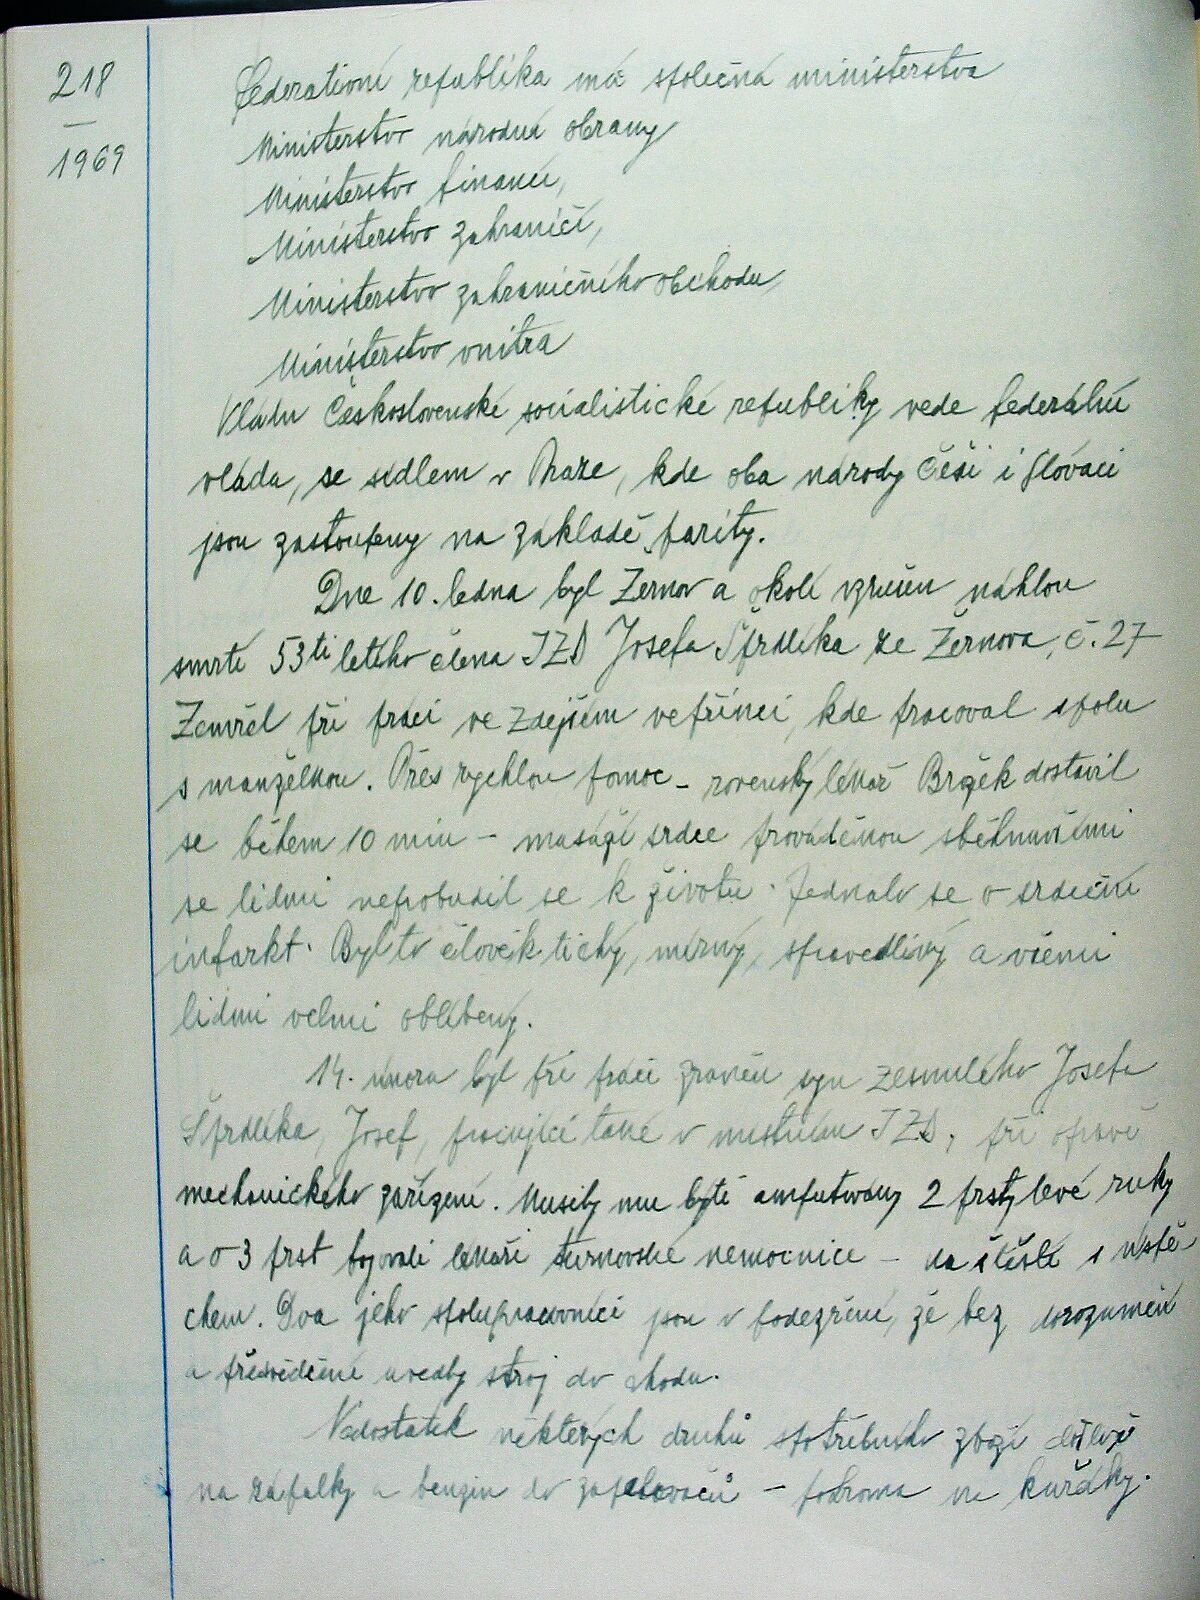 218
1969
Federativní republika má společná ministerstva
Ministerstvo národní obrany
Ministerstvo financí,
Ministerstvo zahraničí,
Ministerstvo zahraničního obchodu,
Ministerstvo vnitra
Vládu Československé socialistické republiky vede federální
vláda, se sídlem v Praze, kde oba národy Češi i Slováci
jsou zastoupeny na základě parity.
Dne 10. ledna byl Žernov a okolí vzrušen náhlou
smrtí 53ti letého člena JZD Josefa Šprdlíka ze Žernova, č. 27
Zemřel při práci ve zdejším vepřínci, kde pracoval spolu
s manželkou. Přes rychlou pomoc - rovenský lékař Brožek dostavil
se během 10 min - masáží srdce prováděnou sběhnuvšími
se lidmi neprobudil se k životu. Jednalo se o srdeční
infarkt. Byl to člověk tichý, mírný, spravedlivý a všemi
lidmi velmi oblíbený.
14. února byl při práci zraněn syn zesnulého Josefa
Šprdlíka, Josef, pracující také v místním JZD, při opravě
mechanického zařízení. Musily mu býti amputovány 2 prsty levé ruky
a o 3 prst bojovali lékaři turnovské nemocnice - na štěstí s úspě-
chem. Dva jeho spolupracovníci jsou v podezření, že bez dorozumění
a přesvědčení uvedly stroj do chodu.
Nedostatek některých druhů spotřebního zboží
na zápalky a benzin do zapalovačů - pohroma na kuřáky.